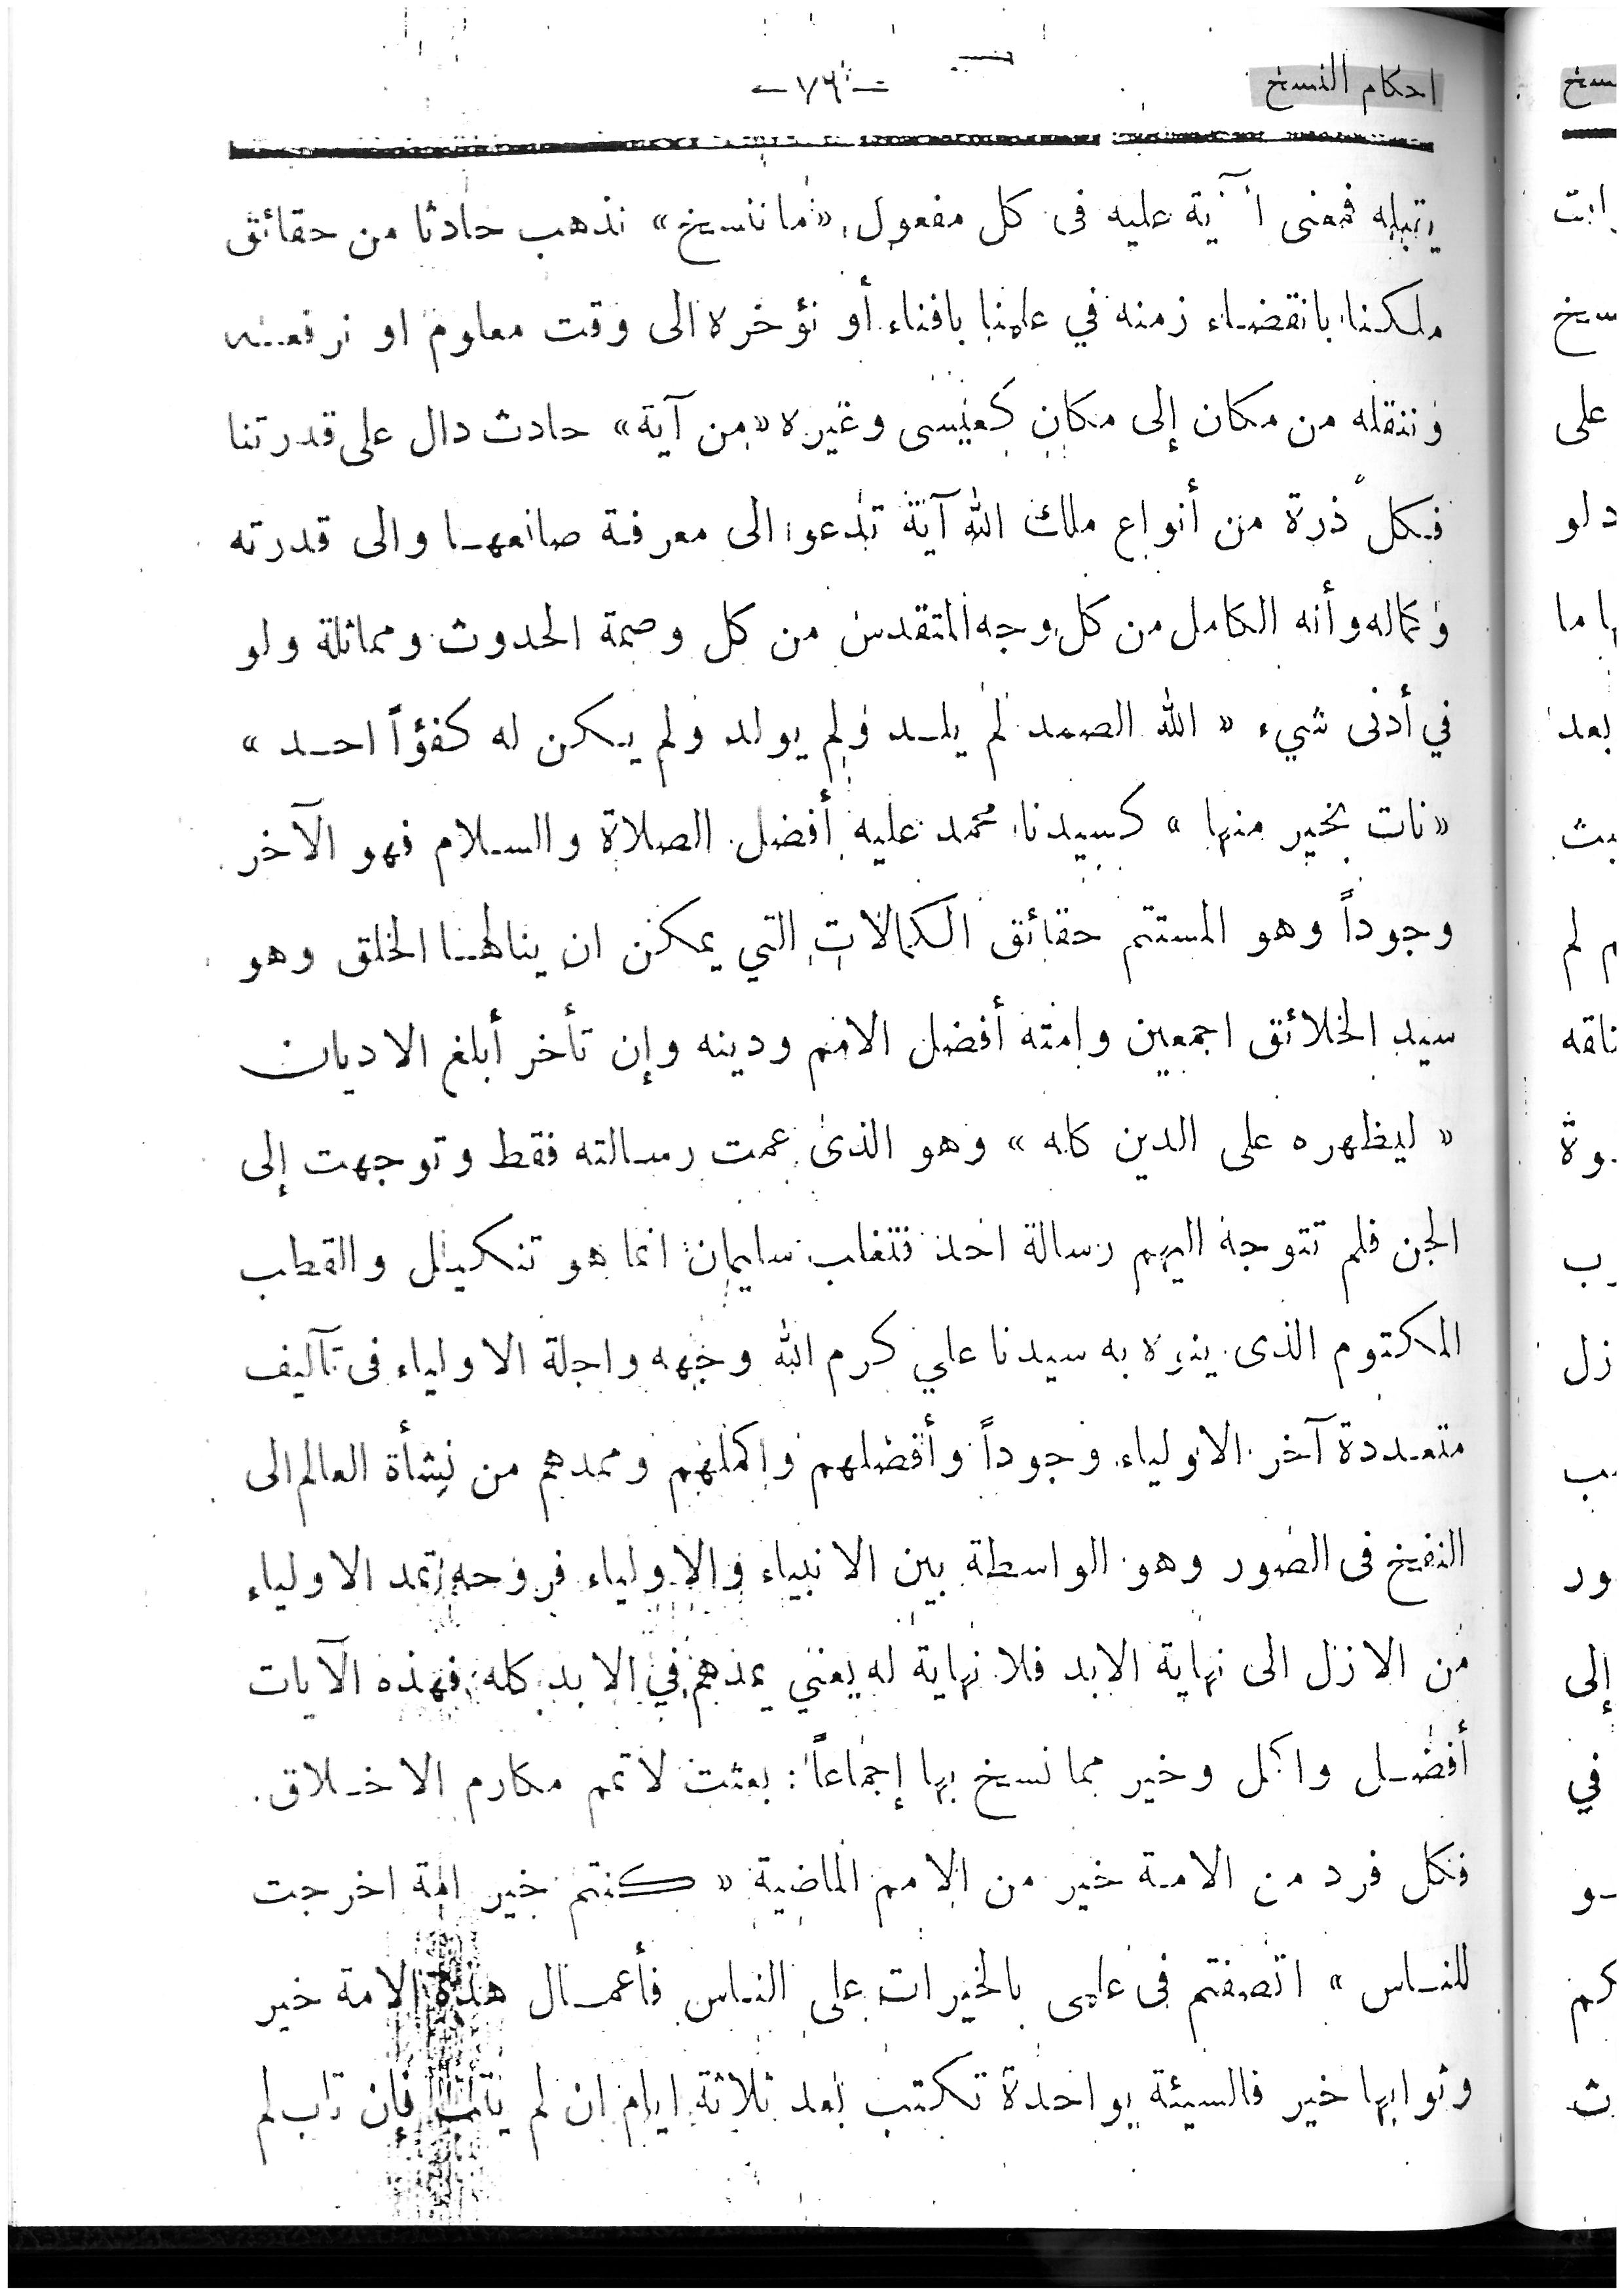 احكام النسخ
-٧٦-
يقبله فمعنى الآية عليه فى كل مفعول «ما ننسخ» نذهب حادثا من حقائق
ملكنا بانقضاء زمنه في علمنا بافناء أو نؤخره الى وقت معلوم او نرفعه
وننقله من مكان إلى مكان كعيسى وغيره «من آية» حادث دال على قدرتنا
فكل ذرة من أنواع ملك الله آية تدعوا الى معرفة صانعها والى قدرته
وكماله وأنه الكامل من كل وجه المتقدس من كل وصمة الحدوث ومماثلة ولو
في أدنى شيء « الله الصمد لم يلد ولم يولد ولم يكن له كفؤاً احد »
«نات بخير منها » كسيدنا محمد عليه أفضل الصلاة والسلام فهو الآخر
وجوداً وهو المستتم حقائق الكمالات التي يمكن ان ينالها الخلق وهو
سيد الخلائق اجمعين وامته أفضل الامم ودينه وإن تأخر أبلغ الاديان
« ليظهره على الدين كله » وهو الذى عمت رسالته فقط وتوجهت إلى
الجن فلم تتوجه اليهم رسالة احد فتغلب سليمان انما هو تنكيل والقطب
المكتوم الذى ينوه به سيدنا علي كرم الله وجهه واجلة الاولياء فى تآليف
متعددة آخر الاولياء وجوداً وأفضلهم واكملهم وممدهم من نشأة العالم الى
النفخ فى الصور وهو الواسطة بين الانبياء والاولياء فروحه تمد الاولياء
من الازل الى نهاية الابد فلا نهاية له يعني يمدهم في الابد كله فهذه الآيات
أفضل واكمل وخير مما نسخ بها إجماعاً: بعثت لاتمم مكارم الاخلاق.
فكل فرد من الامة خير من الامم الماضية « كنتم خير امة اخرجت
للناس » اتصفتم فى علمى بالخيرات على الناس فأعمال هذه الامة خير
وثوابها خير فالسيئة بواحدة تكتب بعد ثلاثة ايام ان لم يتب فإن تاب لم